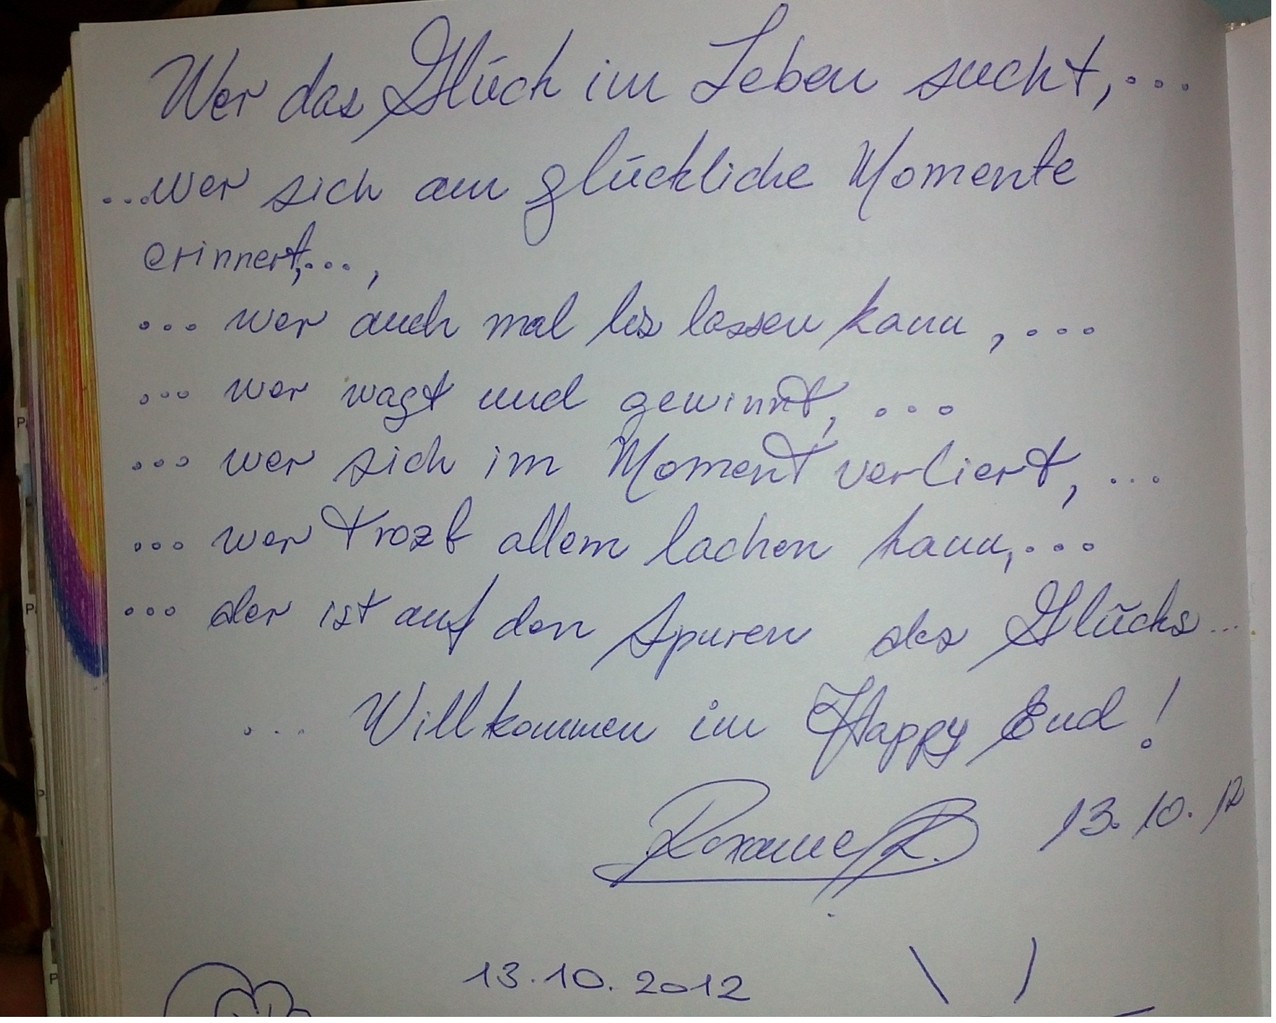 Wer das Glück im Leben sucht,...
...wer sich an glückliche Momente
erinnert,...,
... wer auch mal los lassen kann,...
... wer wagt und gewinnt,...
... wer sich im Moment verliert,...
... wer trozt allem lachen kann,...
... der ist auf den Spuren des Glücks...
... Willkommen im Happy End!
Roxanne R. 13.10.12
13.10.2012
P
P.
P
P